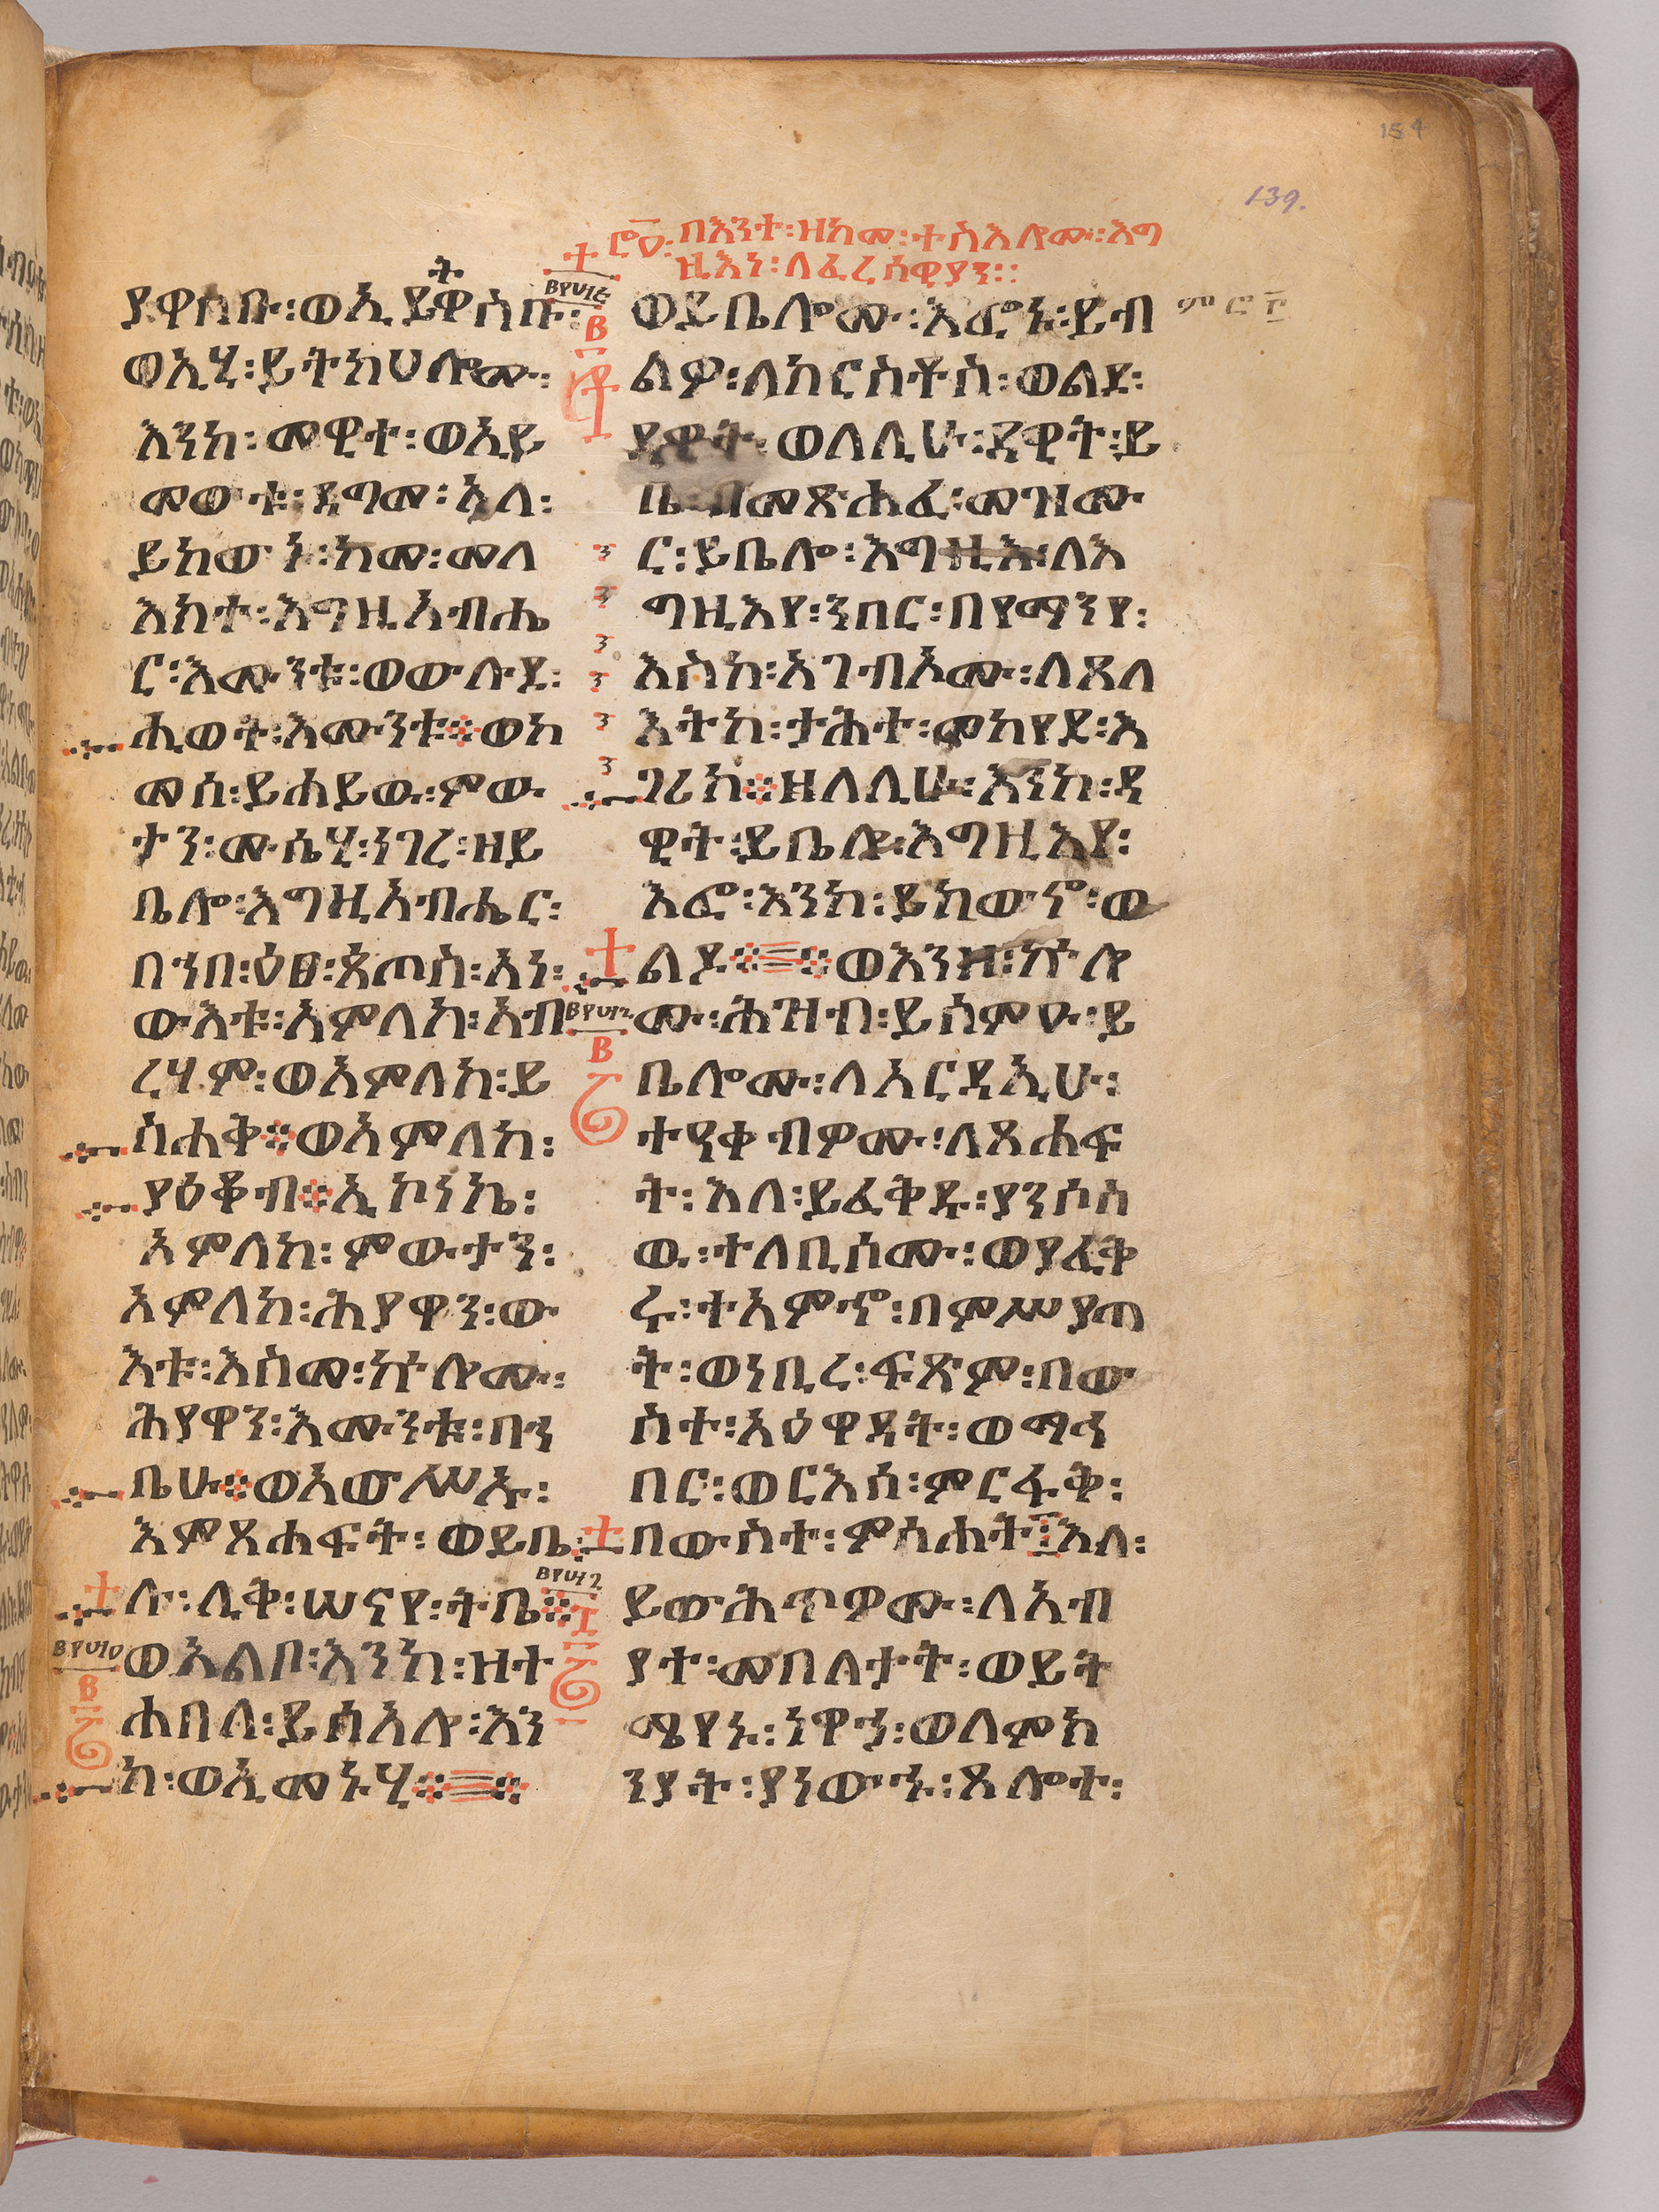 154
139.
በእንተ፡ዘከመ፡ተስእሎሙ፡እግ
ዚእነ፡ለፈረሰዊያን፡፡
ያዋስቡ፡ወኢይዋስቡ፡
ወኢሂ፡ይትክህሎሙ፡
እንከ፡መዊተ፡ወኢይ
መውቱ፡ዳግመ፡አላ፡
ይከውኑ፡ከመ፡መላ
እክተ፡እግዚአብሔ
ር፡እሙንቱ፡ወውሉደ፡
ሒወት፡እሙንቱ፨ወከ
መሰ፡ይሐይዉ፡ምው
ታን፡ሙሴሂ፡ነገረ፡ዘይ
ቤሎ፡እግዚአብሔር፡
በኀበ፡ዕፀ፡ጳጦስ፡አነ፡
ውእቱ፡አምላከ፡አብ
ረሃም፡ወአምላከ፡ይ
ስሐቅ፨ወአምላከ፡
ያዕቆብ፨ኢኮነኬ፡
አምላከ፡ምውታን፡
አምላከ፡ሕያዋን፡ው
እቱ፡እስመ፡ኵሎሙ፡
ሕያዋን፡እሙንቱ፡በኀ
ቤሁ፨ወአውሥኡ፡
እምጸሐፍት፡ወይቤ
ሉ፡ሊቅ፡ሠናየ፡ትቤ፨
ወአልቦ፡እንከ፡ዘተ
ሐበለ፡ይሰአሎ፡እን
ከ፡ወኢመኑሂ፨
ወይቤሎሙ፡እፎኑ፡ይብ
ልዎ፡ለክርስቶስ፡ወልደ፡
ዳዊት፡ወለሊሁ፡ዳዊት፡ይ
ቤ፡በመጽሐፈ፡መዝሙ
ር፡ይቤሎ፡እግዚእ፡ለእ
ግዚእየ፡ንበር፡በየማንየ፡
እስከ፡አገብኦሙ፡ለጸላ
እትከ፡ታሕተ፡መከየደ፡እ
ገሪከ፨ዘለሊሁ፡እንከ፡ዳ
ዊት፡ይቤሎ፡እግዚእየ፡
እፎ፡እንከ፡ይከውኖ፡ወ
ልዶ፨ወእንዘ፡ኵሎ
ሙ፡ሕዝብ፡ይሰምዑ፡ይ
ቤሎሙ፡ለአርዳኢሁ፡
ተዓቀብዎሙ፡ለጸሐፍ
ት፡እለ፡ይፈቅዱ፡ያንሶስ
ዉ፡ተለቢሰሙ፡ወያፈቅ
ሩ፡ተአምኖ፡በምሥያጠ
ት፡ወነቢረ፡ፍጽም፡በው
ስተ፡አዕዋዳት፡ወማኅ
በር፡ወርእሰ፡ምርፋቅ፡
በውስተ፡ምሳሐት፤እለ፡
ይውሕጥዎሙ፡ለአብ
ያተ፡መበለታት፡ወይት
ሜየኑ፡ነዋኀ፡ወለምክ
ንያት፡ያነውኁ፡ጸሎተ፡